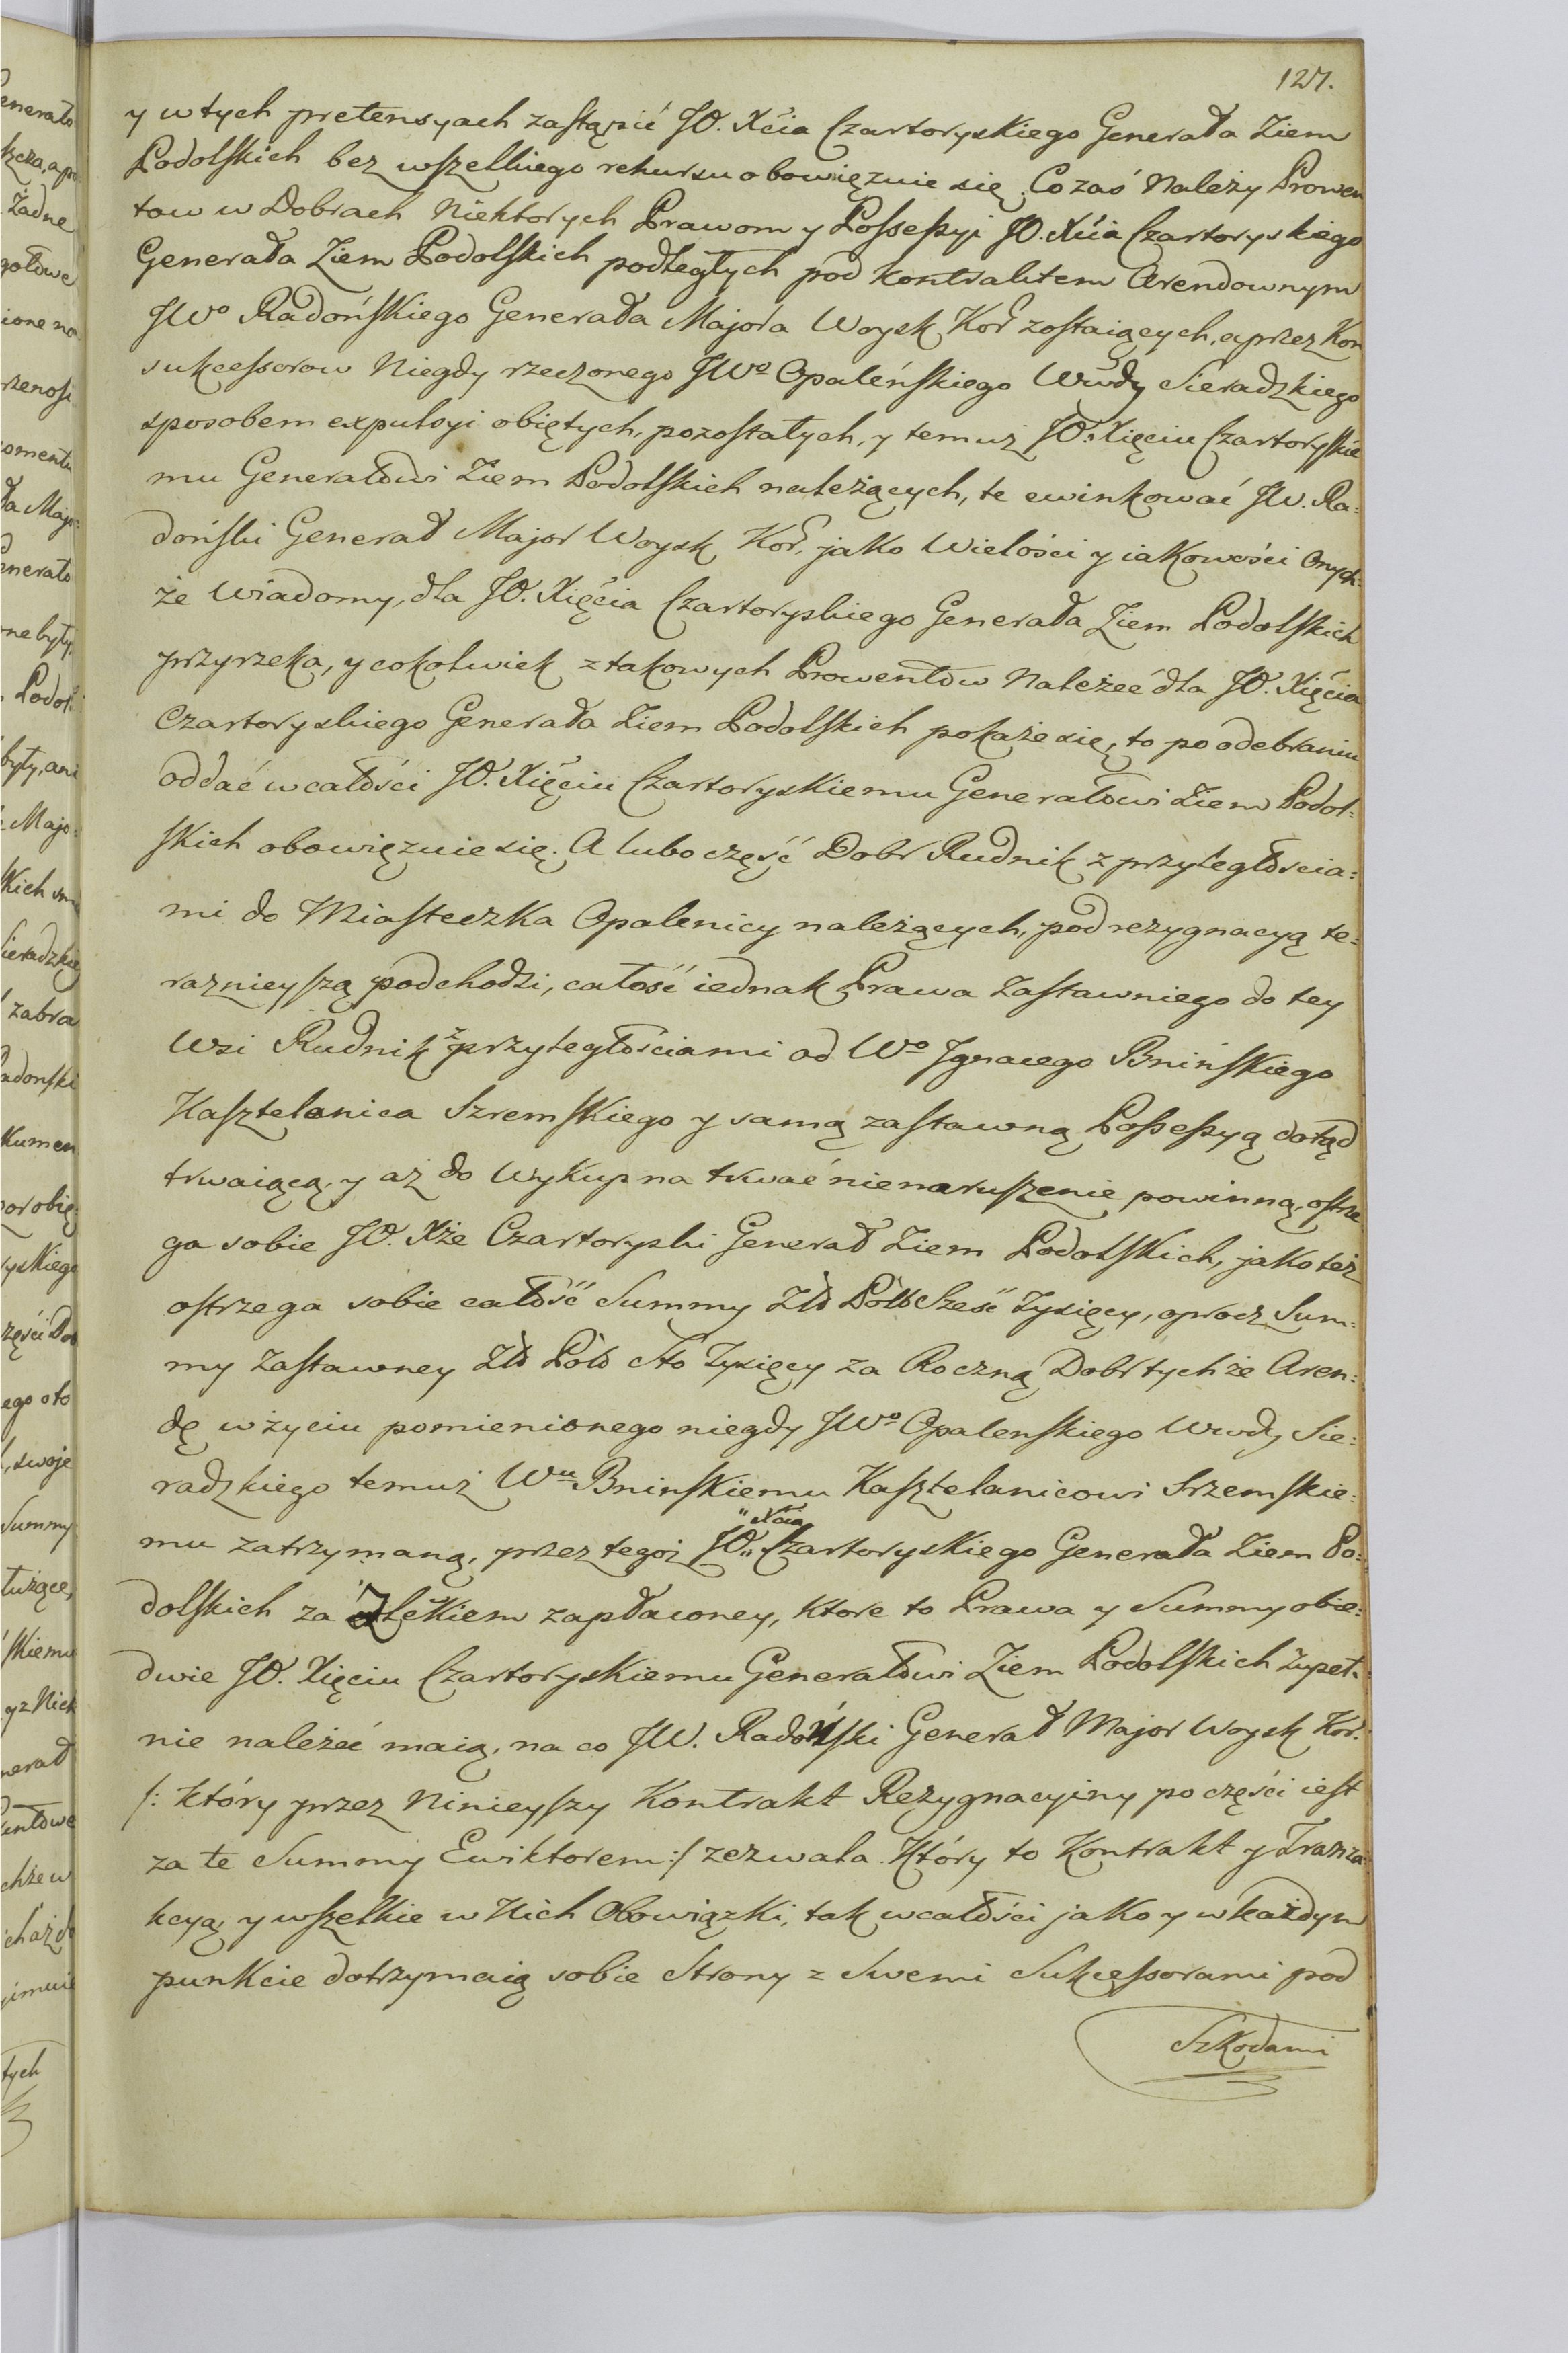 127.
y w tych pretensyach zastąpić JO. Xcia Czartoryskiego Generała Ziem
Podolskich bez wszelkiego rekursu obowięzuie się. Co zaś Należy Prowen
tow w Dobrach Niektorych Prawom y Possessyi JO. Xcia Czartoryskiego
Generała Ziem Podolskich podległych pod kontraktem Arendownym
JWo Radońskiego Generała Majora Woysk Kor zostaiących, a przez Kon
sukcessorow Niegdy rzeczonego JWo Opaleńskiego Wwdy Sieradzkiego
sposobem expulsyi obiętych, pozostałych, y temuż JO. Xięciu Czartoryskie
mu Generałowi Ziem Podolskich należących, te ewinkować JW. Ra=
doński Generał Major Woysk Kor. jako Wielości y iakowości Onych=
że Wiadomy, dla JO. Xięcia Czartoryskiego Generała Ziem Podolskich
przyrzeka, y cokolwiek z takowych Prowentow Należeć dla JO. Xięcia
Czartoryskiego Generała Ziem Podolskich pokaże się, to po odebraniu
oddać w całości JO. Xięciu Czartoryskiemu Generałowi Ziem Podol=
skich obowięzuie się. A lubo część Dobr Rudnik z przyległościa=
mi do Miasteczka Opalenicy należących, pod rezygnacyą te=
raznieyszą podchodzi, całość iednak Prawa Zastawniego do tey
Wsi Rudnik z przyległościami od Wo Jgnacego Bninskiego
Kasztelanica Szremskiego y samą zastawną Possessyą dotąd
trwaiącą, y aż do Wykupna trwać nienaruszenie powinną, ostrze
ga sobie JO. Xże Czartoryski Generał Ziem Podolskich, jako też
ostrzega sobie całość Summy Złł Pols Sześć Tysięcy, oprocz Sum=
my Zastawney Złł Pols Sto Tysięcy za Roczną Dobr tychże Aren=
dę w życiu pomienionego niegdy JWo Opalenskiego Wwdy Sie=
radzkiego temuż Wu Bninskiemu Kasztelanicowi Srzemskie=
mu zatrzymaną, przez tegoż JO. „Xcia„ Czartoryskiego Generała Ziem Po=
dolskich za Zleckiem zapłaconey, ktore to Prawa y Summy obie=
dwie JO. Xięciu Czartoryskiemu Generałowi Ziem Podolskich zupeł=
nie należeć maią, na co JW. Radoński Generał Major Woysk Kor.
/: który przez Ninieyszy Kontrakt Rezygnacyiny po części iest
za te Summy Ewiktorem :/ zezwala. Który to Kontrakt y Tranza=
kcyą, y wszelkie w Nich Obowiązki, tak w całości jako y w każdym
punkcie dotrzymaią sobie Strony z Swemi Sukcessorami pod
Szkodami